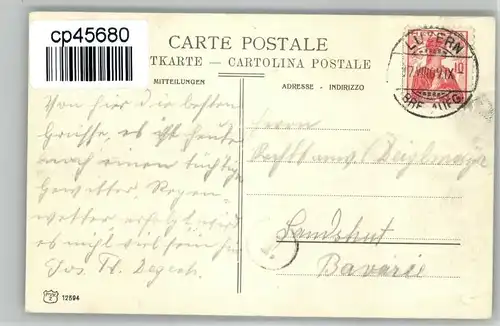 cp45680
CARTE POSTALE
TKARTE - CARTOLINA POSTALE
MITTEILUNGEN
ADRESSE - INDIRIZZO
LUZERN
BRF. AUFG.
10
Von hier die besten
Grüsse, es ist heute
nach einem tüchtigen
Gewitter, Regen-
wetter erfolgt, wird
es nicht viel sein
Jos.
Herrn
Rechtsanw. Deiglmayr
Landshut
Bavaria
12594